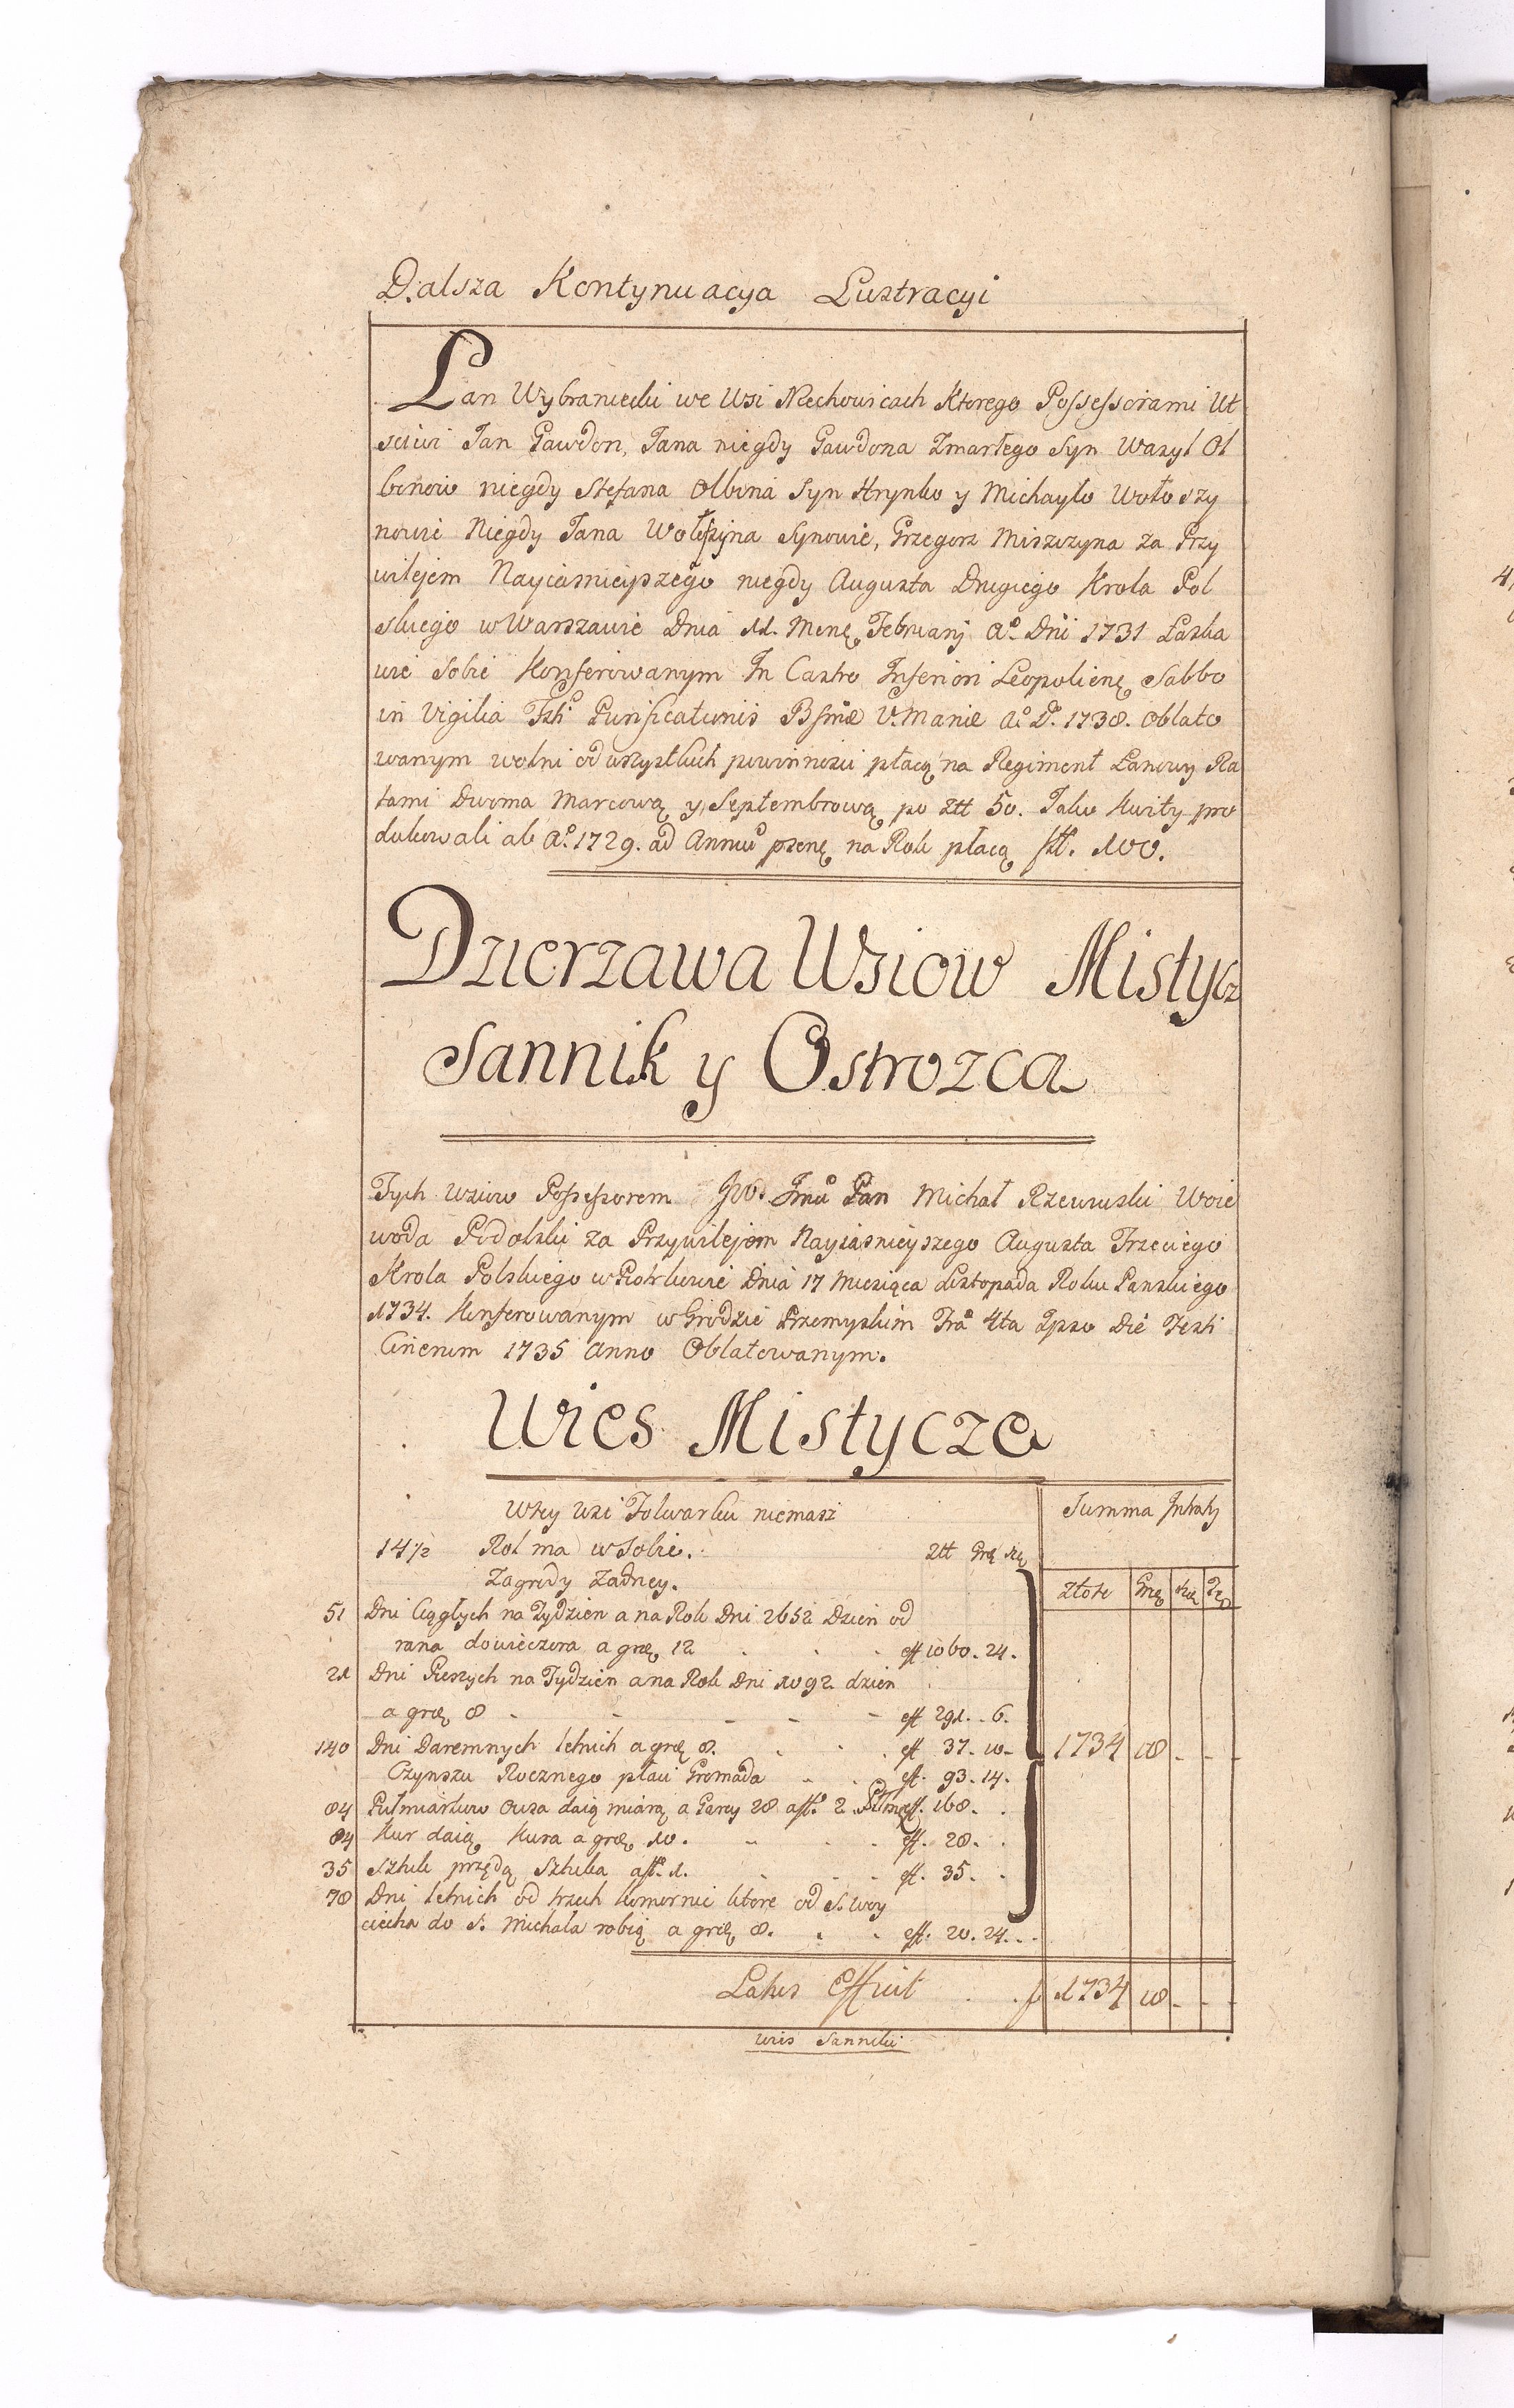 Dalsza Kontynuacya Lustracyi
Lan Wybraniecki we Wsi Nechowicach Ktorego Possessorami Ut
sciwi Jan Gawdon, Jana niegdy Gawdona Zmarłego Syn Wasyl Ol
binow niegdy Stefana Olbina Syn Hrynko y Michayło Wołoszy
nowie Niegdy Jana Wołoszyna Synowie, Grzegorz Miszczyna za Przy
wilejem Nayiasnieyszego niegdy Augusta Drugiego Krola Pol
skiego w Warszawie Dnia 11. Mens Februarij Ao. Dni 1731 Łaska
wie Sobie Konferowanym In Castro Inferiori Leopoliens Sabbo
in Vigilia Fsti Purificationis Bsmæ V. Mariæ Ao. D. 1738. Oblato
wanym wolni od wszystkich powinnosci płacą na Regiment Lanowy Ra
tami Dwoma Marcową y Septembrową po Ztt 50. Jako Kwity pro
dukowali ab Ao. 1729. ad Annum psens na Rok płacą 100.
Dzierzawa Wsiow Mistycz
Sannik y Ostrozca
Tych Wsiow Possessorem JW. Jmc Pan Michał Rzewuski Woie
woda Podolski za Przywilejem Nayiasnieyszego Augusta Trzeciego
Krola Polskiego w Piotrkowie Dnia 17 Miesiąca Listopada Roku Panskiego
1734. Konferowanym w Grodzie Przemyskim Fra 4ta Ipso Die Festi
Cinerum 1735 Anno Oblatowanym.
Wies Mistycze
Wtey Wsi Folwarku niemasz Summa Intraty
14 1/2 Rol ma w Sobie. Ztt Grę Sz
Zagrody Zadney. Złote Grę
51 Dni Ciągłych na Tydzien a na Rok Dni 2652 Dzien od
rana do wieczora a grę 12 eft 1060. 24.
21 Dni Pieszych na Tydzien a na Rok Dni 1092 dzien
a grę 8 eft 291. 6.
140 Dni Daremnych letnich a grę 8. eft 37. 10 1734 18
Czynszu Rocznego płaci Gromada eft. 93. 14.
84 Pułmiarkow Owsa daią miarą a Garcy 28 a 2. eft. 168.
84 Kur daią Kura a grę 10. eft. 28.
35 Sztuk przędą Sztuka a 1. eft. 35.
78 Dni letnich od trzech Komornic ktore od S. Woy
ciecha do S. Michała robią a grę 8. eft. 20. 24.
Latus Efficit f 1734 18
Wies Sanniki